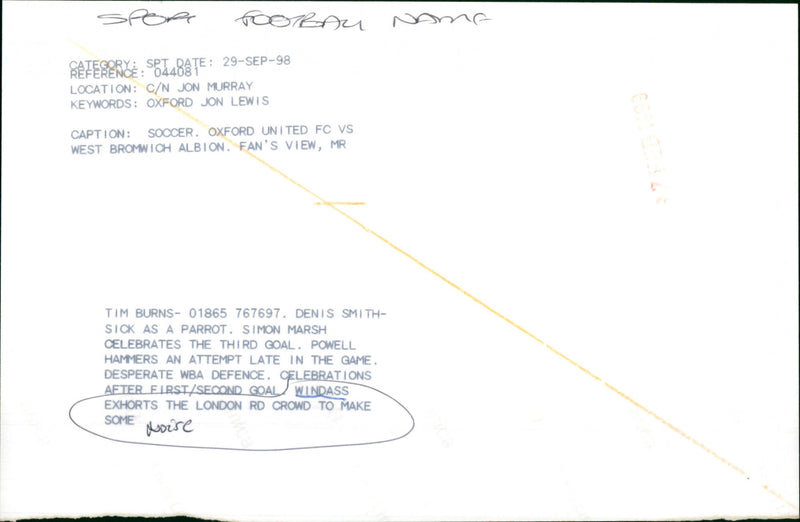 SPORT FOOTBALL NAME
CATEGORY: SPT DATE: 29-SEP-98
REFERENCE: 044081
LOCATION: C/N JON MURRAY
KEYWORDS: OXFORD JON LEWIS
CAPTION: SOCCER. OXFORD UNITED FC VS
WEST BROMWICH ALBION. FAN'S VIEW, MR
TIM BURNS- 01865 767697. DENIS SMITH-
SICK AS A PARROT. SIMON MARSH
CELEBRATES THE THIRD GOAL. POWELL
HAMMERS AN ATTEMPT LATE IN THE GAME.
DESPERATE WBA DEFENCE. CELEBRATIONS
AFTER FIRST/SECOND GOAL WINDASS
EXHORTS THE LONDON RD CROWD TO MAKE
SOME NOISE